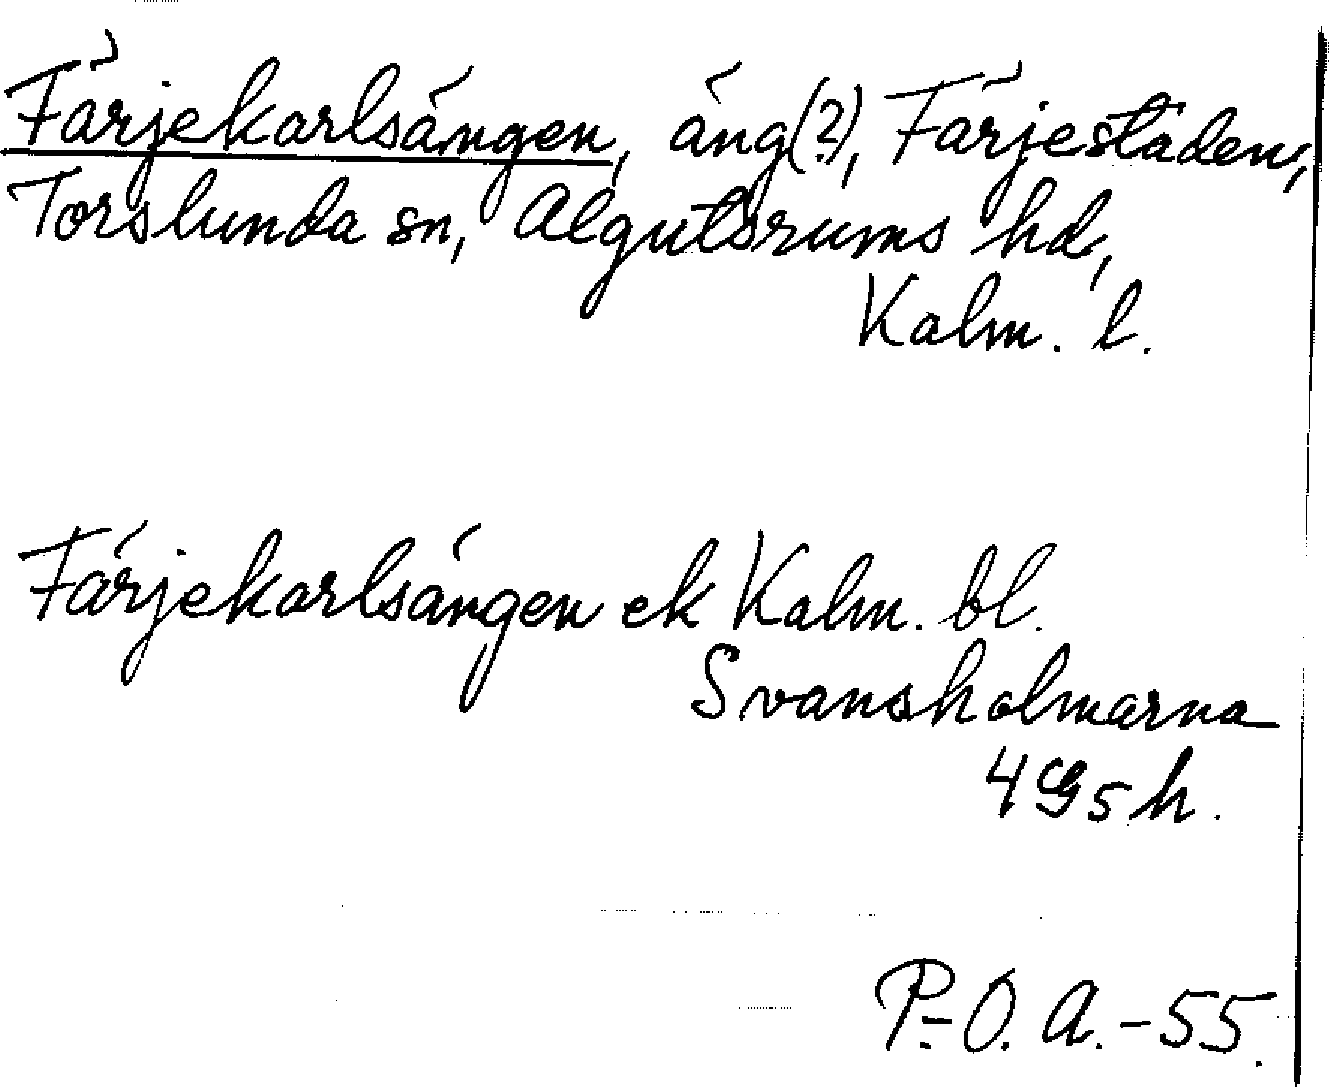 Färjekarlsängen, äng(?), Färjestaden,
Torslunda sn, Algutsrums hd,
Kalm. l.
Färjekarlsängen ek Kalm. bl.
Svansholmarna
4G5h.
P.-O. A.-55.